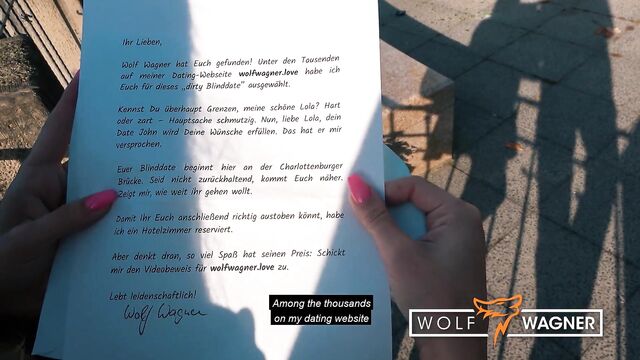 Ihr Lieben,
Wolf Wagner hat Euch gefunden! Unter den Tausenden
auf meiner Dating-Webseite wolfwagner.love habe ich
Euch für dieses „dirty Blinddate" ausgewählt.
Kennst Du überhaupt Grenzen, meine schöne Lola? Hart
oder zart – Hauptsache schmutzig. Nun, liebe Lola, dein
Date John wird Deine Wünsche erfüllen. Das hat er mir
versprochen.
Euer Blinddate beginnt hier an der Charlottenburger
Brücke. Seid nicht zurückhaltend, kommt Euch näher.
Zeigt mir, wie weit ihr gehen wollt.
Damit Ihr Euch anschließend richtig austoben könnt, habe
ich ein Hotelzimmer reserviert.
Aber denkt dran, so viel Spaß hat seinen Preis: Schickt
mir den Videobeweis für wolfwagner.love zu.
Lebt leidenschaftlich!
Wolf Wagner
Among the thousands
on my dating website
WOLF WAGNER